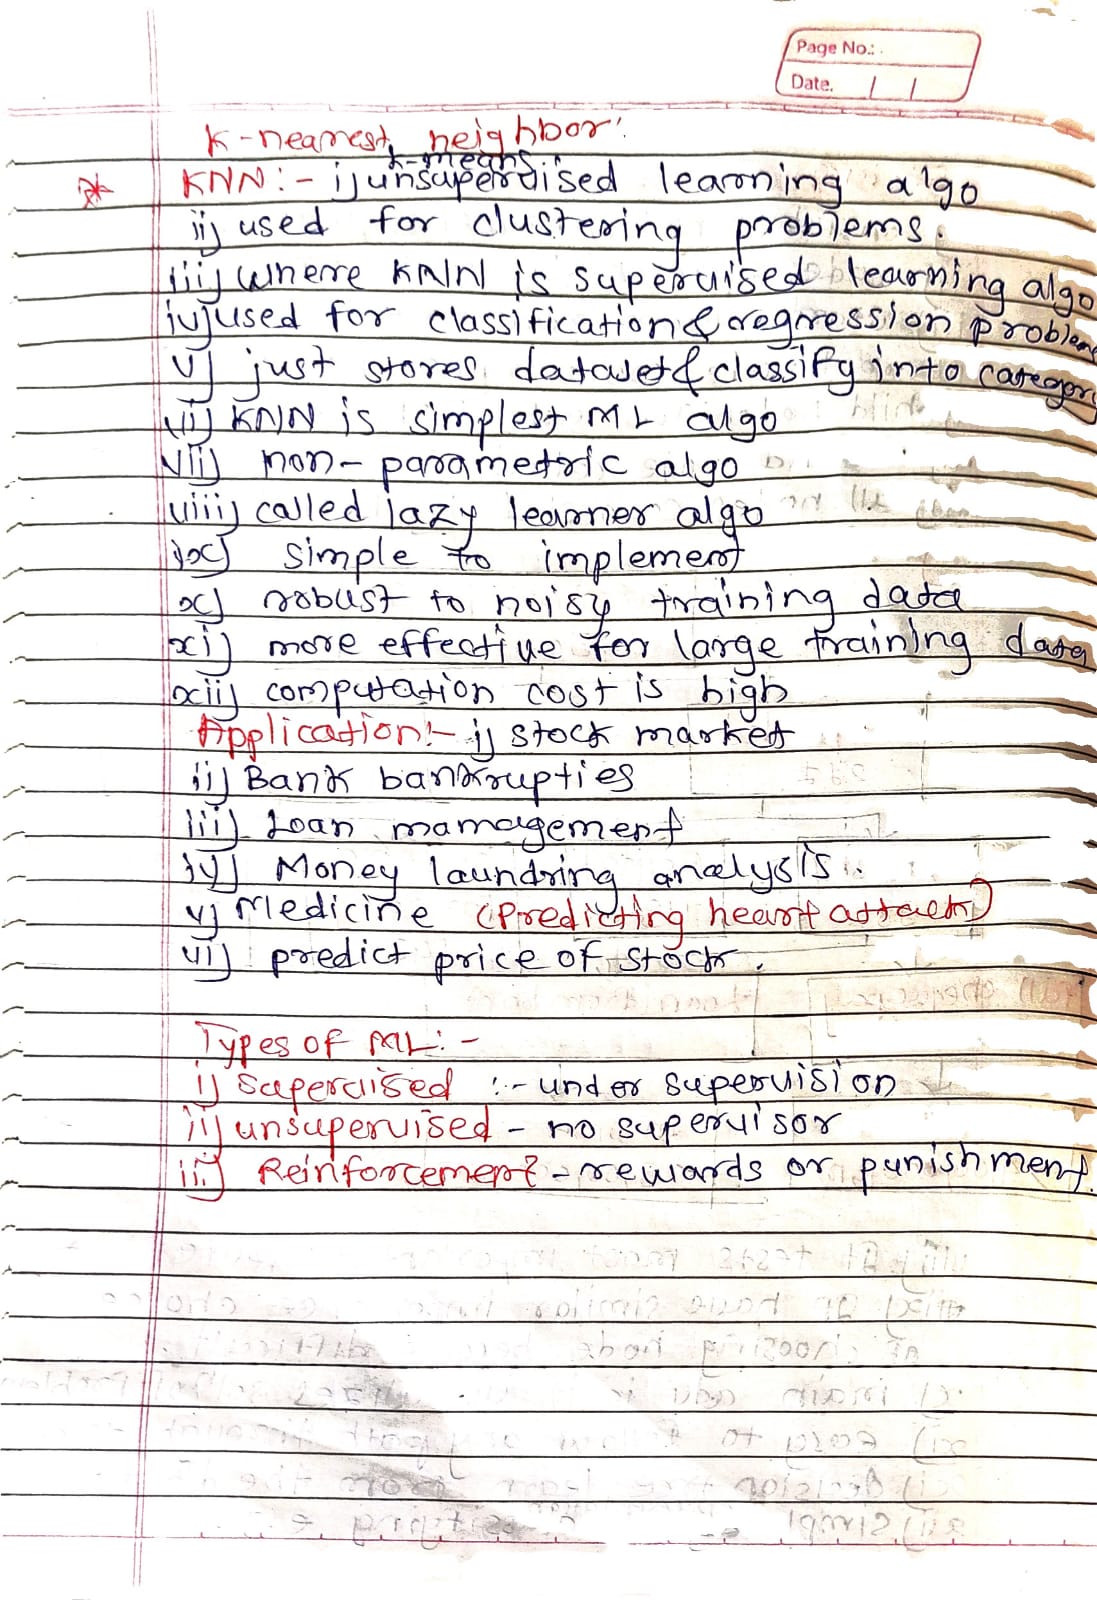 Page No.:
Date.
K-nearest neighbor:
k-means
KNN:- i) unsupervised learning algo
ii) used for clustering problems.
iii) where KNN is supervised learning algo
iv) used for classification & regression problem
v) just stores dataset & classify into category
vi) KNN is simplest ML algo
vii) non-parametric algo
viii) called lazy learner algo
ix) simple to implement
x) robust to noisy training data
xi) more effective for large training data
xii) computation cost is high
Application:- i) stock market
ii) Bank bankrupties
iii) Loan mamagement
iv) Money laundring analysis.
v) Medicine (Predicting heart attack)
vi) predict price of stock.
Types of ML:-
i) Supervised :- under supervision
ii) unsupervised - no supervisor
iii) Reinforcement - rewards or punishment.